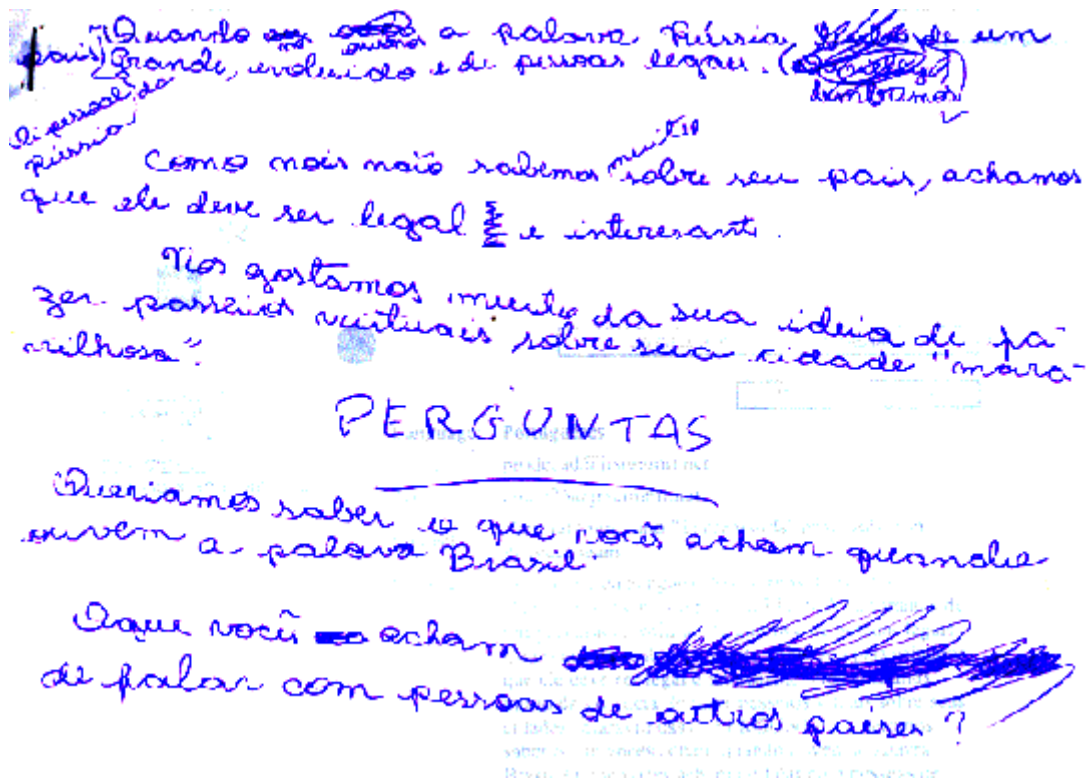 Quando nós ouvimos a palavra Rússia, lembramos de um
país Grande, evoluido e de pessoas legais.
Oi pessoal da
Rússia!
Como nois naõ sabemos muito sobre seu pais, achamos
que ele deve ser legal e interesante.
Nos gostamos muito da sua ideia de fa-
zer passeios virtuais sobre sua cidade "mara-
vilhosa".
PERGUNTAS
Queriamos saber o que vocês acham quando
ouvem a palavra Brasil.
Oque vocês acham
de falar com pessoas de outros paises?